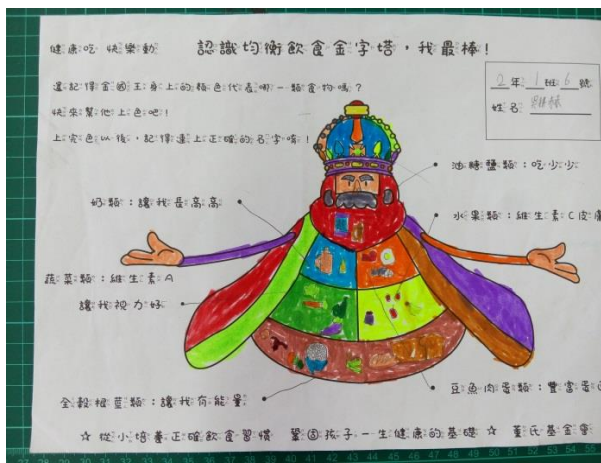 健康吃 快樂動 認識均衡飲食金字塔,我最棒!
還記得金國王身上的顏色代表哪一類食物嗎?
快來幫他上色吧!
上完色以後,記得連上正確的名字唷!
2年1班6號
姓名
油糖鹽類:吃少少
奶類:讓我長高高
水果類:維生素C皮膚
蔬菜類:維生素A
讓我視力好
豆魚肉蛋類:豐富蛋白
全穀根莖類:讓我有能量
☆從小培養正確飲食習慣 鞏固孩子一生健康的基礎☆ 董氏基金會